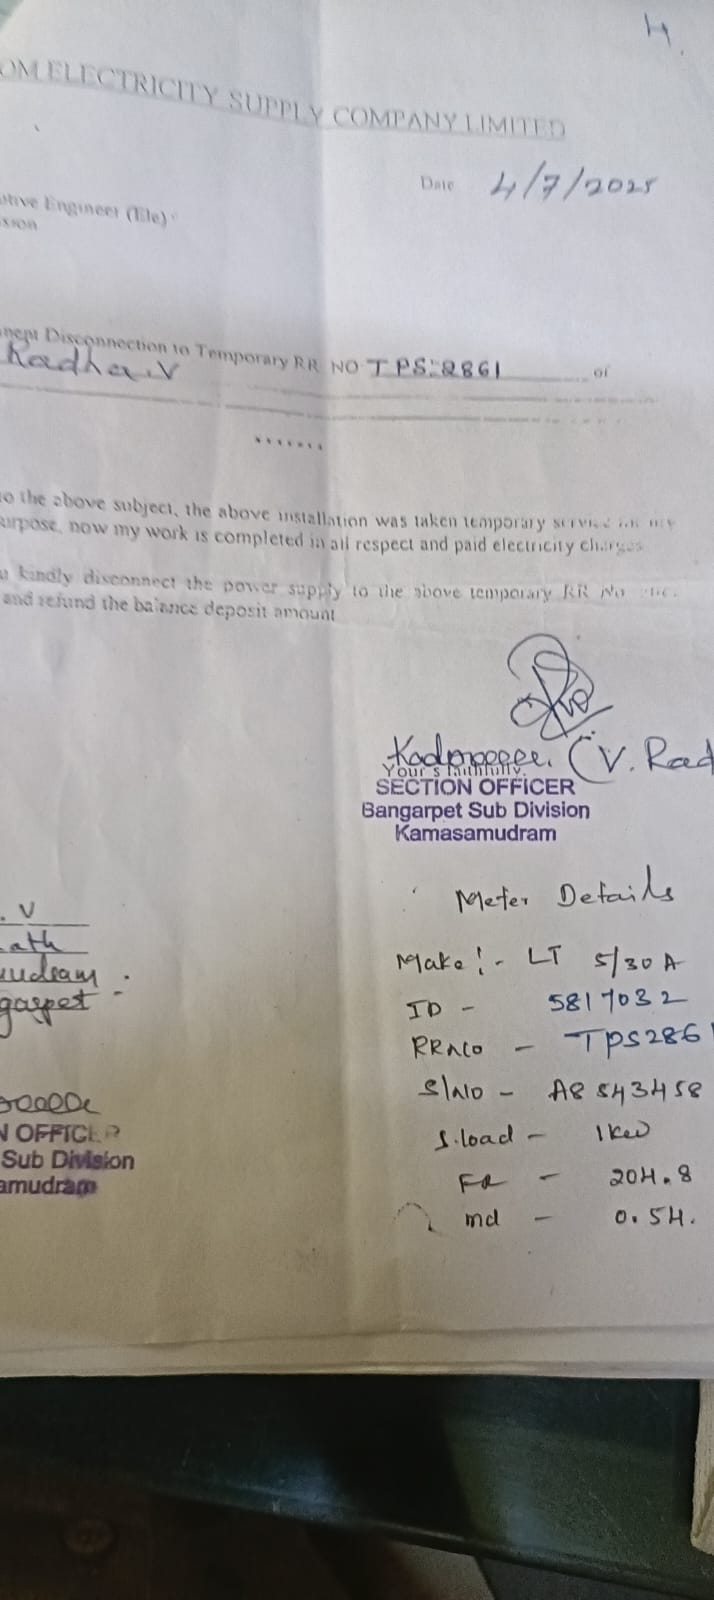 H.
OM ELECTRICITY SUPPLY COMPANY LIMITED
Date 4/7/2025
utive Engineer (Ele)
ssion
nent Disconnection to Temporary RR NO TPS:2861 of
Radha.V
.......
to the above subject, the above installation was taken temporary service for my
urpose, now my work is completed in all respect and paid electricity charges
u kindly disconnect the power supply to the above temporary RR No
and refund the balance deposit amount
(V. Rad
Your's faithfully,
SECTION OFFICER
Bangarpet Sub Division
Kamasamudram
Meter Details
Make:- LT 5/30 A
ID - 5817032
RRNO - TPS2861
S/NO - A8543458
S.load - 1KW
FR - 204.8
md - 0.54.
. V
ath
mudram.
garpet -
N OFFICER
Sub Division
amudram